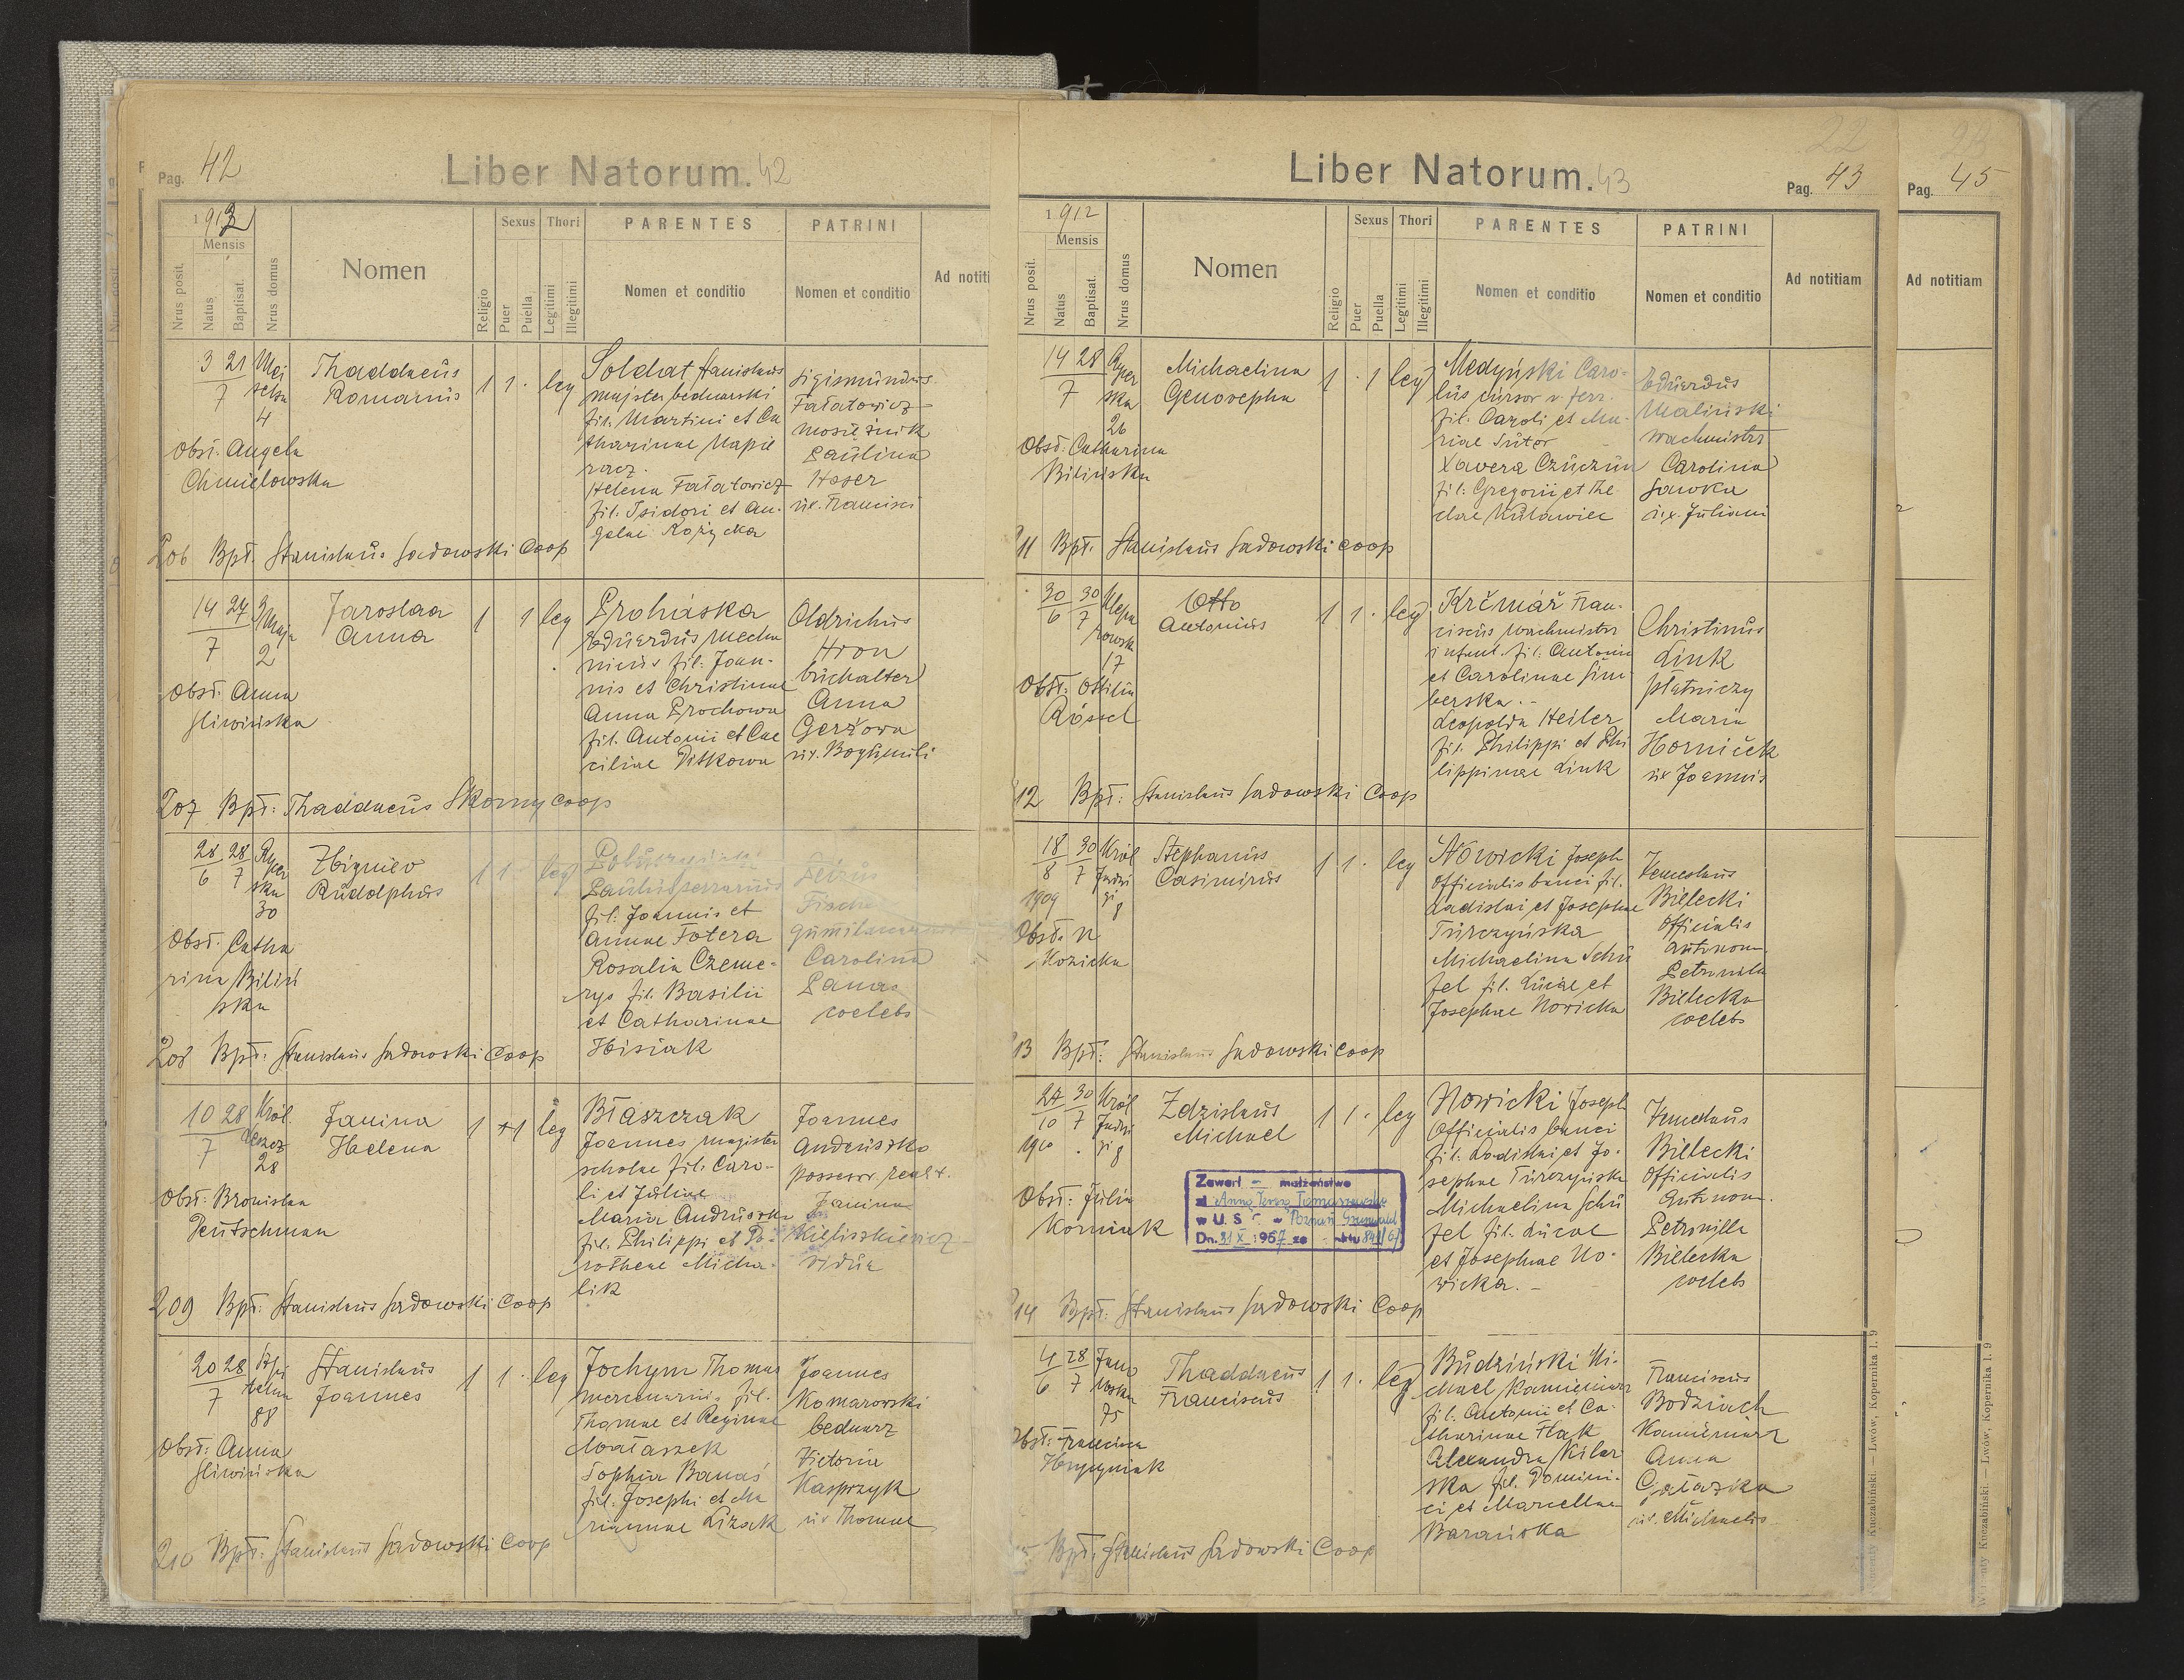 Pag. 42
Liber Natorum. 42
1912
Mensis
Nrus posit.
Natus
Baptisat.
Nrus domus
Nomen
Religio
Sexus
Puer
Puella
Thori
Legitimi
Illegitimi
PARENTES
Nomen et conditio
PATRINI
Nomen et conditio
Ad notiti
3 21
7
4
Thaddaeus
Romanus
1 1 · leg
Soldat Stanislaus
majster bednarski
fil. Martini et Ca
tharinae Napie
racz.
Helena Fałatowicz
fil. Isidori et An-
gelae Różycka
Sigismundus
Fałatowicz
mosiężnik
Paulina
Haser
ux. Francisci
Obst. Angela
Chmielowska
206 Bpt. Stanislaus Sadowski Coop
14 27
7
3 Maja
2
Jaroslaa
Anna
1 1 leg
Prohaska
Eduardus mecha
nicus fil. Joan-
nis et Christinae
Anna Prochowa
fil. Antonii et Cae
ciliae Pitkowa
Oldrichus
Hron
buchalter
Anna
Geržowa
ux. Bogumili
Obst. Anna
Sliwińska
207 Bpt: Thaddaeus Skorny coop
28 28
6 7
Rycer
ska
30
Zbigniev
Rudolphus
1 1 · leg
fil. Joannis et
Annae Fotera
Rosalia Czeme-
rys fil. Basilii
et Catharinae
Hisiak
Carolina
Panas
coelebs
Obst. Catha
rina Biliń
ska
208 Bpt: Stanislaus Sadowski Coop
10 28
7
Król.
Leszcz
28
Janina
Helena
1 + 1 leg
Błaszczak
Joannes magister
scholae fil. Caro-
li et Juliae
Maria Andruszko
fil. Philippi et Do-
rotheae Micha-
lik
Joannes
Andruszko
possessor realit.
Janina
Kieliszkiewicz
vidua
Obst: Bronislaa
Deutschman
209 Bpt: Stanislaus Sadowski Coop
20 28
7
88
Stanislaus
Joannes
1 1 · leg
Jochym Thomas
mercenarius fil.
Thomae et Reginae
Małaszek
Sophia Banaś
fil. Josephi et Ma
riannae Lizak
Joannes
Komarowski
bednarz
Victoria
Kasprzyk
ux Thomae
Obst: Anna
Sliwińska
210 Bpt: Stanislaus Sadowski Coop
22
Liber Natorum. 43
Pag. 43
1912
Mensis
Nrus posit.
Natus
Baptisat.
Nrus domus
Nomen
Religio
Sexus
Puer
Puella
Thori
Legitimi
Illegitimi
PARENTES
Nomen et conditio
PATRINI
Nomen et conditio
Ad notitiam
14 28
7
Rycer
ska
26
Michaelina
Genovepha
1 · 1 leg
Medyński Caro-
lus cursor v. ferr.
fil. Caroli et Ma-
riae Sutor
Xavera Czuczun
fil. Gregorii et The
clae Kulawiec
Eduardus
Maliński
wachmistrz
Carolina
Sawka
ux. Juliani
Obst. Catharina
Bilińska
11 Bpt. Stanislaus Sadowski coop
30 30
6 7
Klepa
rowsk
17
Otto
Antonius
1 1 · leg
Krčmář Fran-
ciscus wachmistrz
infant. fil. Antonii
et Carolinae Sim
berska.-
Leopolda Heiler
fil. Philippi et Phi
lippinae Link
Christinus
Link
płatniczy
Maria
Horniček
ux Joannis
Obst. Ottilia
Rössel
12 Bpt: Stanislaus Sadowski Coop
18 30
8 7
1909
Król
Jadwi
gi 8
Stephanus
Casimirus
1 1 · leg
Nowicki Joseph
Officialis banci fil.
Ladislai et Josephae
Turczyńska
Michaelina Schu
fel fil. Lucae et
Josephae Nowicka
Venceslaus
Bielecki
Officialis
autonom
Petronila
Bielecka
coelebs
Obst. N
Kozicka
13 Bpt: Stanislaus Sadowski coop
27 30
10 7
1910
Król
Jadwi
gi 8
Zdzislaus
Michael
1 1 · leg
Nowicki Joseph
Officialis banci
fil. Ladislai et Jo-
sephae Turczyńska
Michaelina Schu
fel fil. Lucae
et Josephae No-
wicka.-
Venceslaus
Bielecki
Officialis
Autonom.
Petronilla
Bielecka
coelebs
Obst: Julia
Korniak
Zawarł małżeństwo
z Anną Teresą Tomaszewską
w U. S. C. Poznań Grunwald
Dn. 31 X 1967 za
14 Bpt: Stanislaus Sadowski Coop
4 28
6 7
Jano
wska
75
Thaddaeus
Franciscus
1 1 · leg
Budziński Mi-
chael Kamieniarz
fil. Antonii et Ca-
tharinae Flak
Alexandra Kilar
ska fil. Domini-
ci et Marcellae
Barańska
Franciscus
Bodziach
Kamieniarz
Anna
ux. Michaelis
Obst: Francisca
Hryczyniak
Bpt. Stanislaus Sadowski Coop
Kuczabiński. — Lwów, Kopernika 1. 9
23
Pag. 45
Ad notitiam
Kuczabiński. — Lwów, Kopernika 1. 9